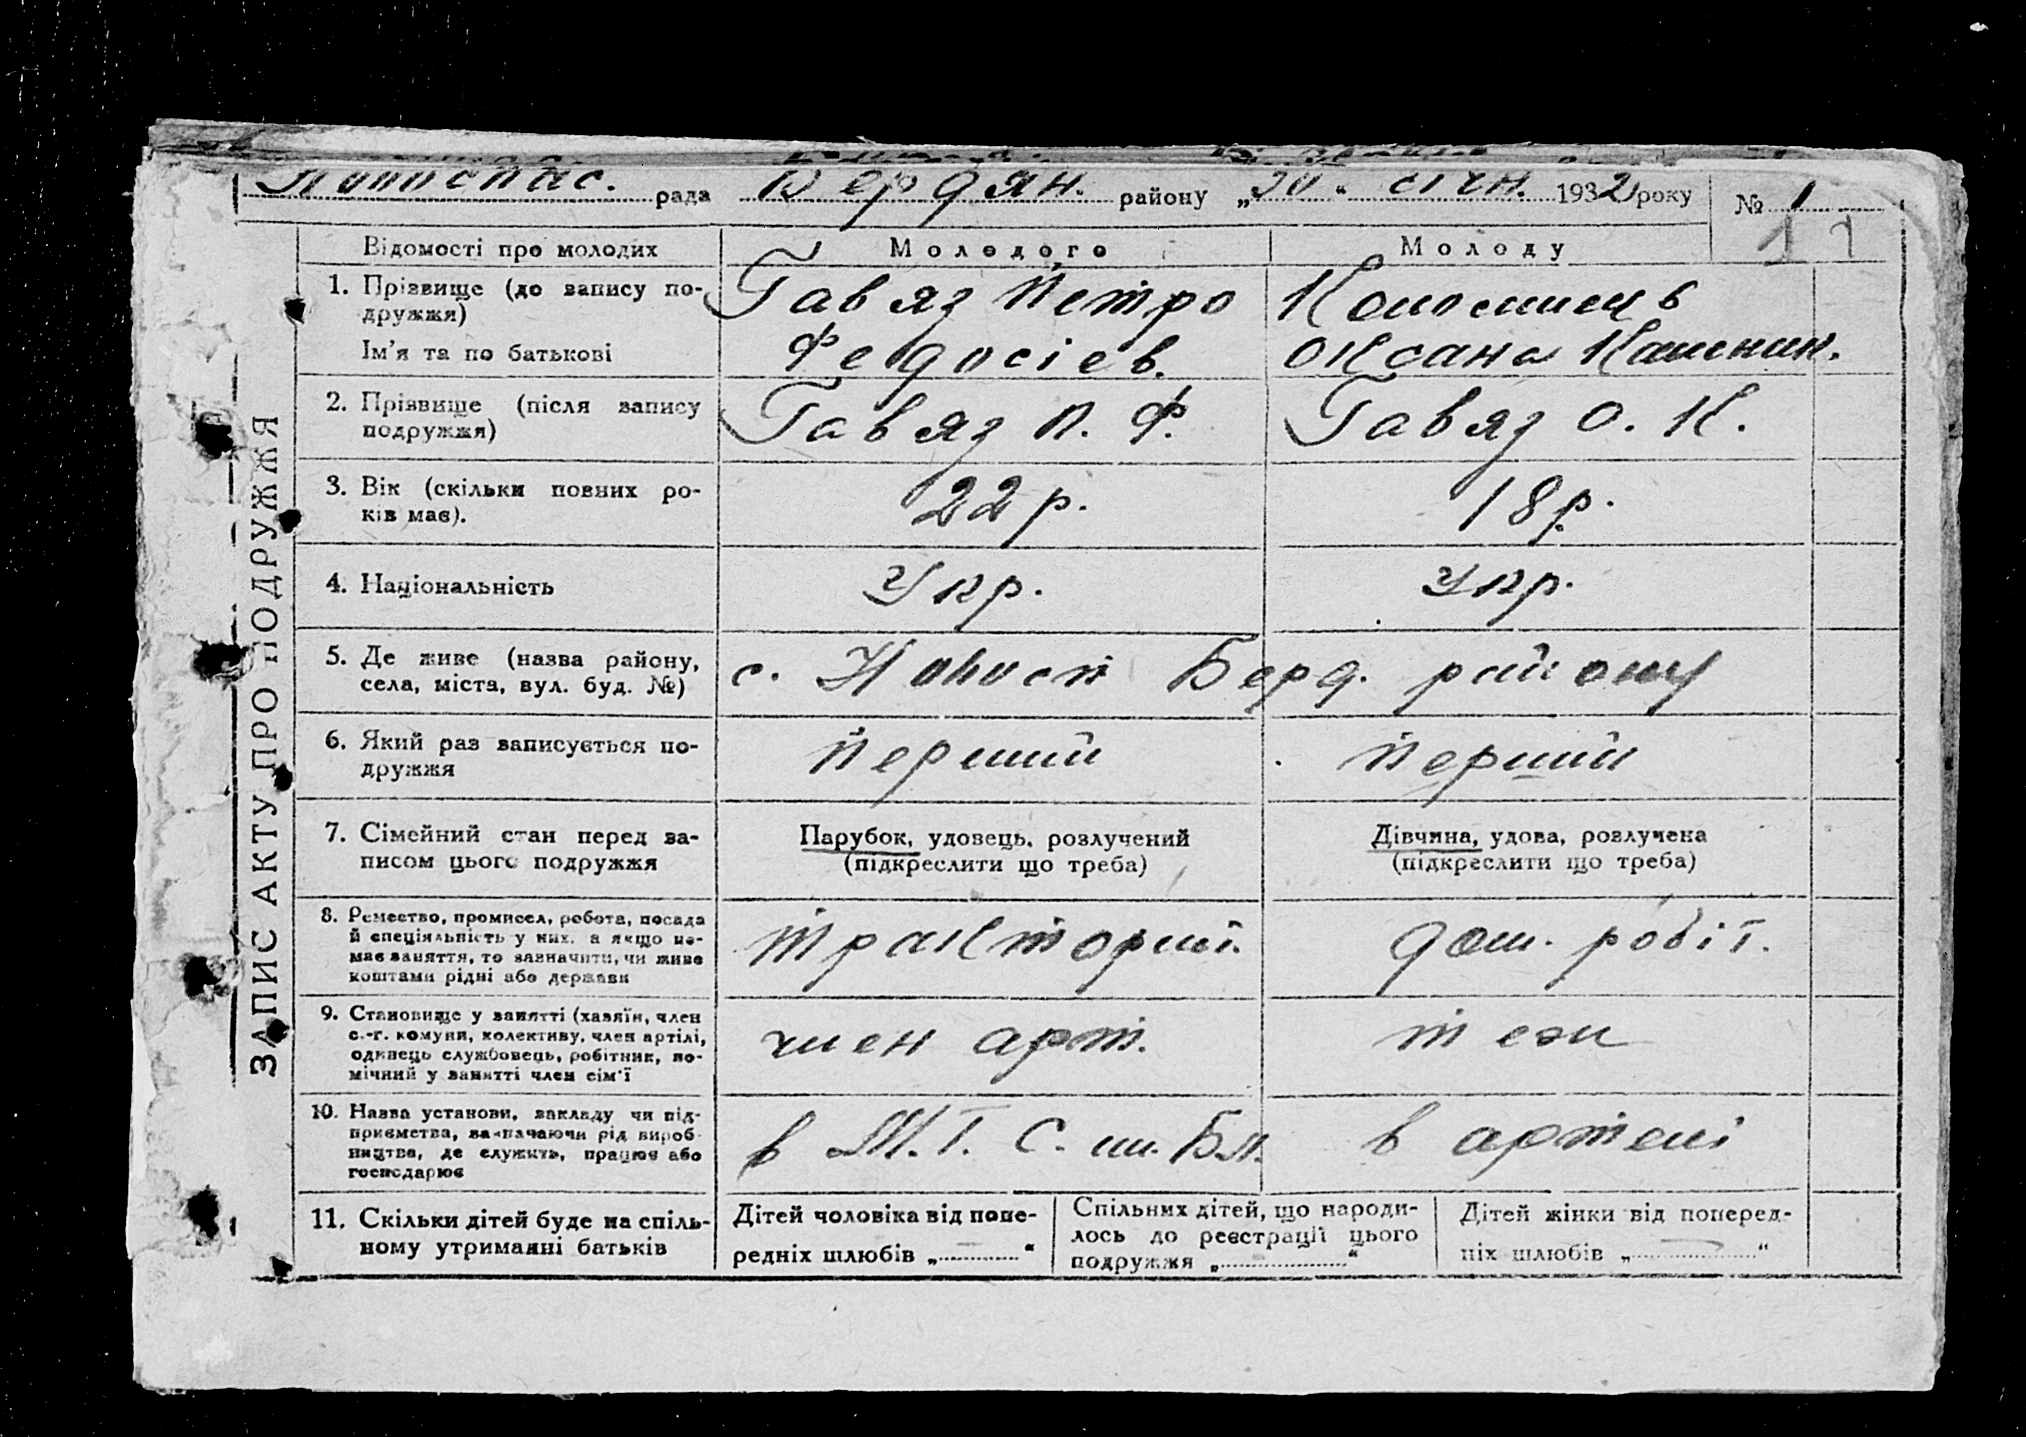 Новоспас. рада Бердян. району „30“ січн. 1932 року № 1
11
ЗАПИС АКТУ ПРО ПОДРУЖЖЯ
Відомості про молодих Молодого Молоду
1. Прізвище (до запису по- Гавяз Петро
дружжя)
Ім'я та по батькові Федосієв. Оксана
2. Прізвище (після запису Гавяз П. Ф. Гавяз О. К.
подружжя)
3. Вік (скільки повних ро- 22 р. 18 р.
ків має).
4. Національність Укр. Укр.
5. Де живе (назва району, с. Новосп Берд. району
села, міста, вул. буд. №)
6. Який раз записується по- Перший Перший
дружжя
7. Сімейний стан перед за- Парубок, удовець, розлучений Дівчина, удова, розлучена
писом цього подружжя (підкреслити що треба) (підкреслити що треба)
8. Ремество, промисел, робота, посада
й спеціяльність у них, а якщо не- тракторист. дом. робіт.
має заняття, то зазначити, чи живе
коштами рідні або держави
9. Становище у занятті (хазяїн, член
с.-г. комуни, колективу, член артілі, член арт. тежи
одинець службовець, робітник, по-
мічний у занятті член сім'ї
10. Назва установи, закладу чи під-
приємства, зазначаючи рід вироб- в М.Т.С. в артелі
ництва, де служить, працює або
господарює
11. Скільки дітей буде на спіль- Дітей чоловіка від попе- Спільних дітей, що народи- Дітей жінки від поперед-
ному утриманні батьків редніх шлюбів „—“ лось до реєстрації цього ніх шлюбів „—“
подружжя „ “